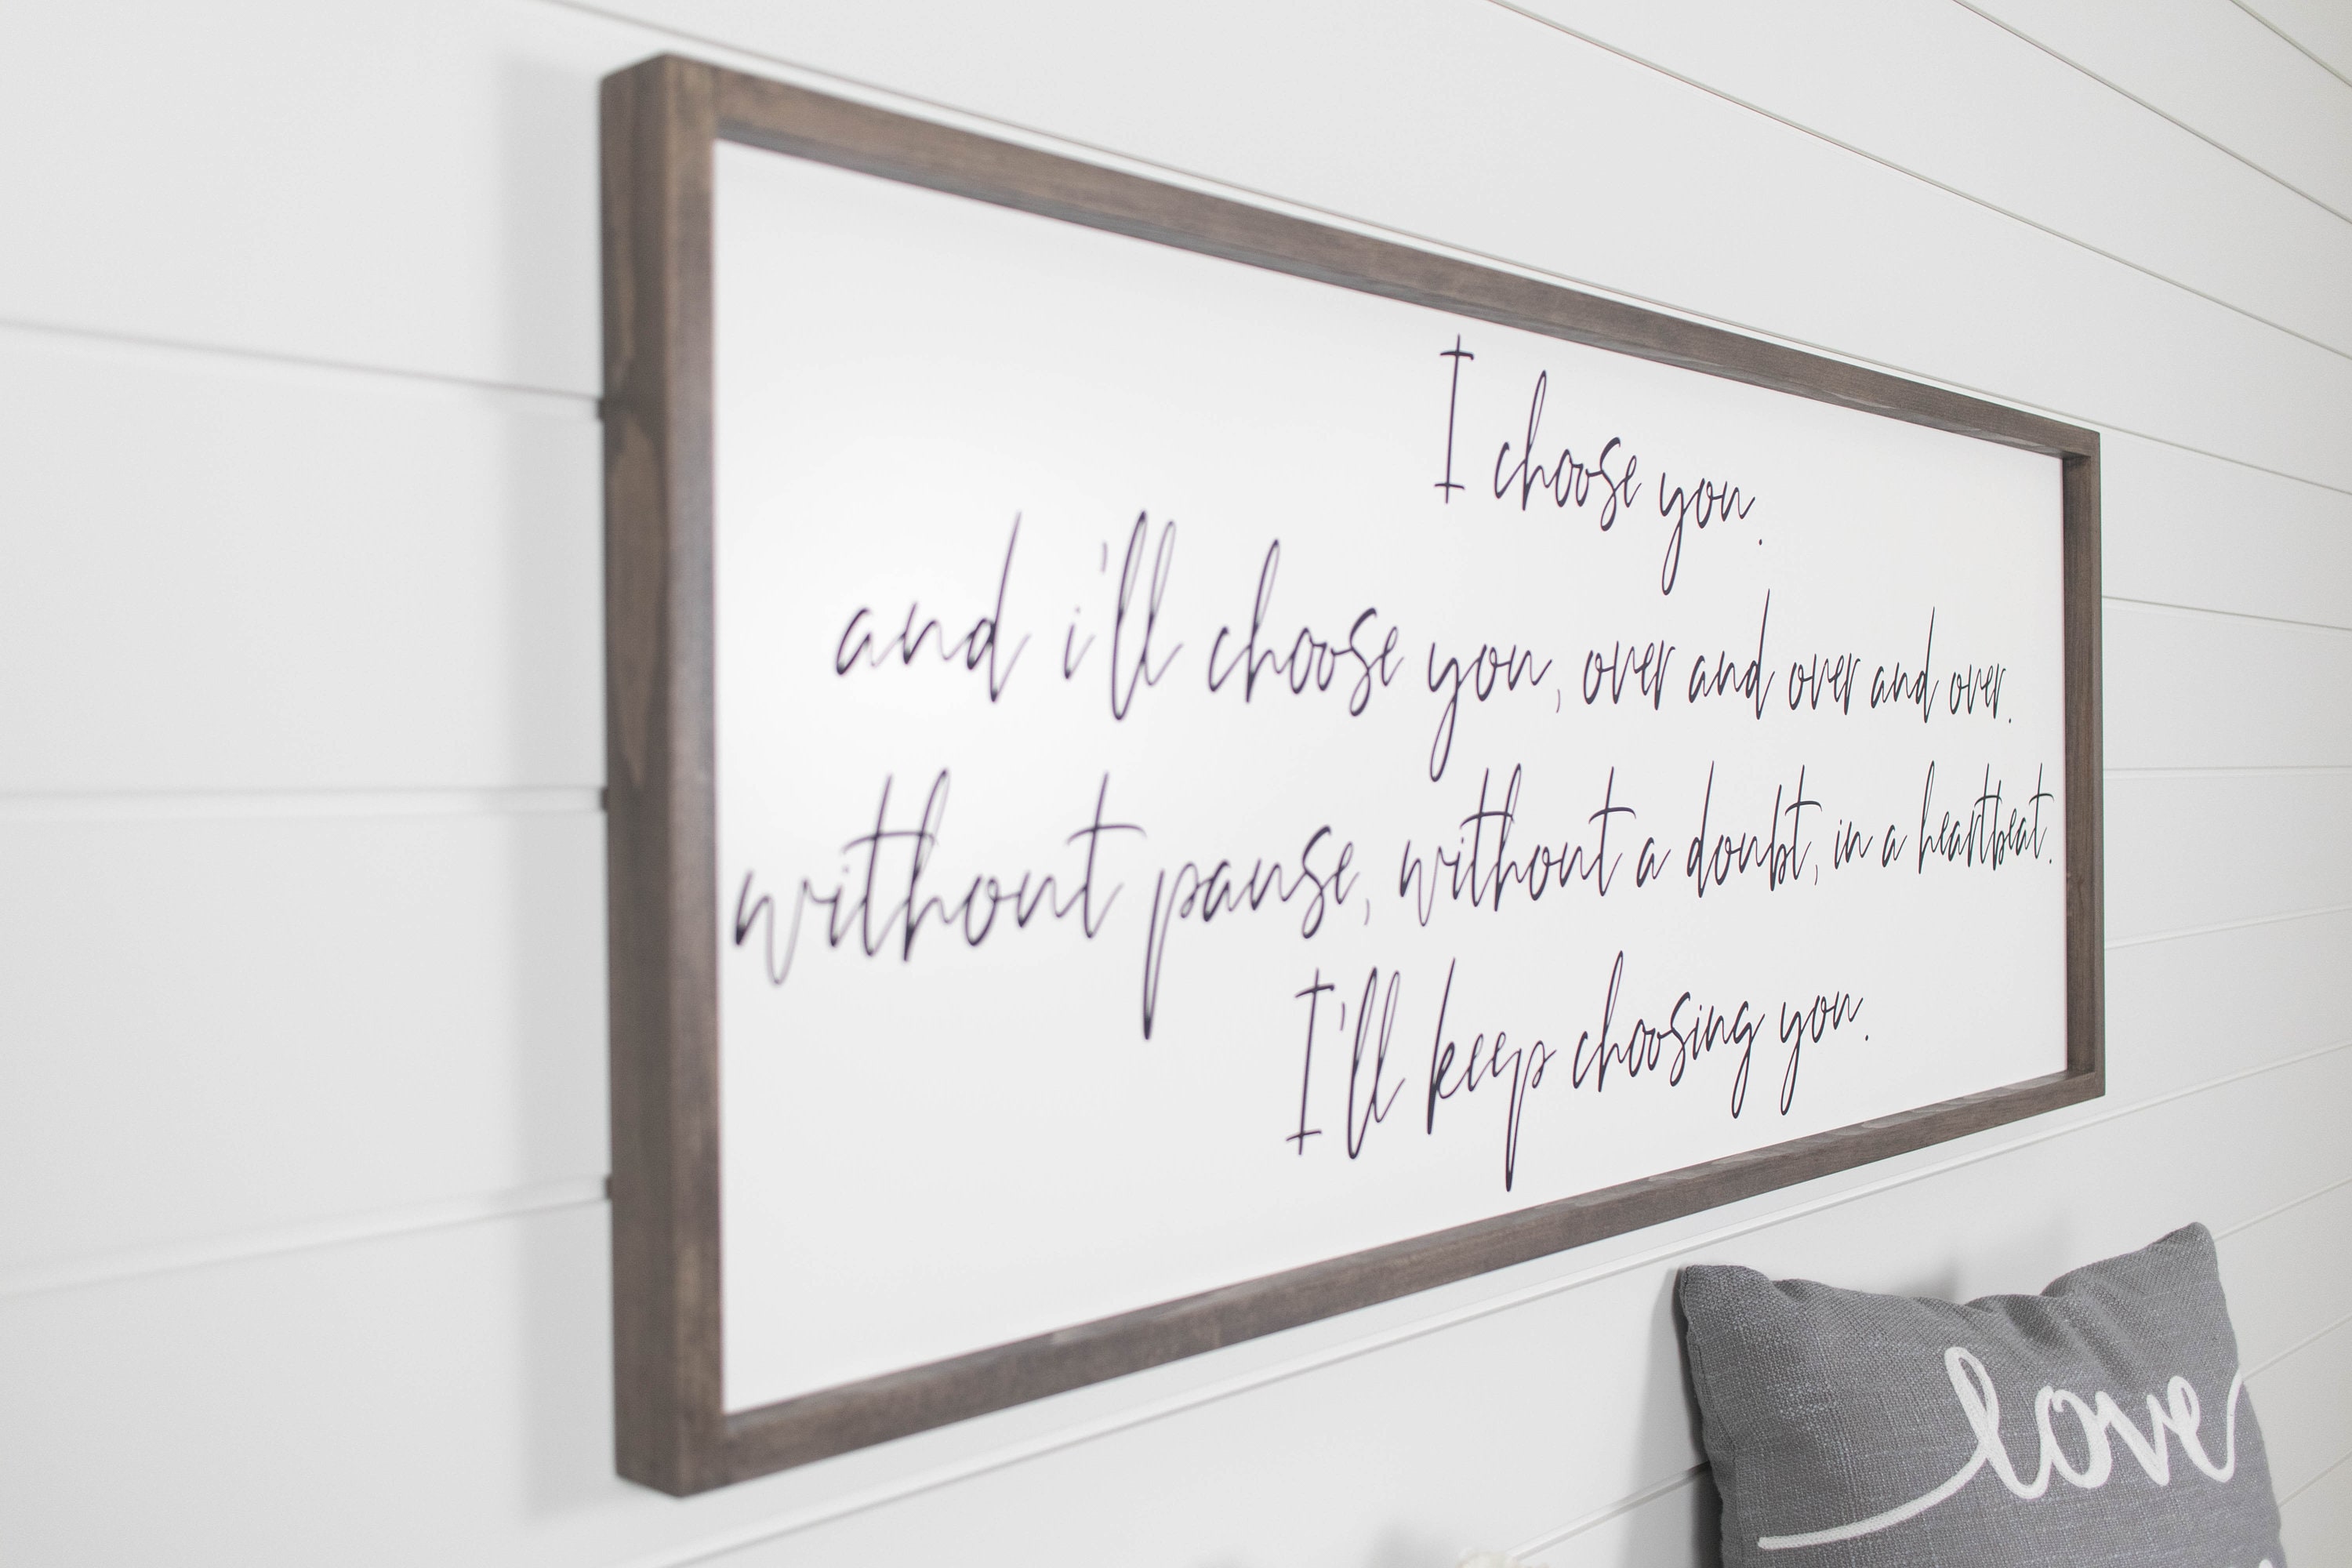 I choose you.
and i'll choose you, over and over and over.
without pause, without a doubt, in a heartbeat.
I'll keep choosing you.
love